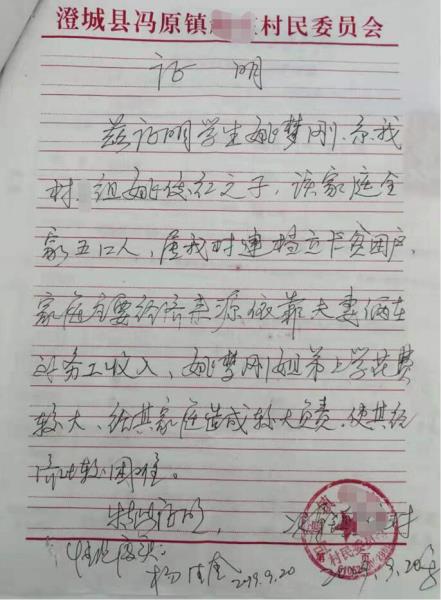 澄城县冯原镇 村民委员会
证 明
兹证明学生姚梦刚，系我
村 组姚俊红之子，该家庭全
家五口人，属我村建档立卡贫困户，
家庭主要经济来源依靠夫妻俩在
外务工收入、姚梦刚姐弟上学花费
较大、给其家庭造成较大负责，使其经
济比较困难。
特此证明，
冯原镇 村
情况属实
2019.9.20
2019.9.20